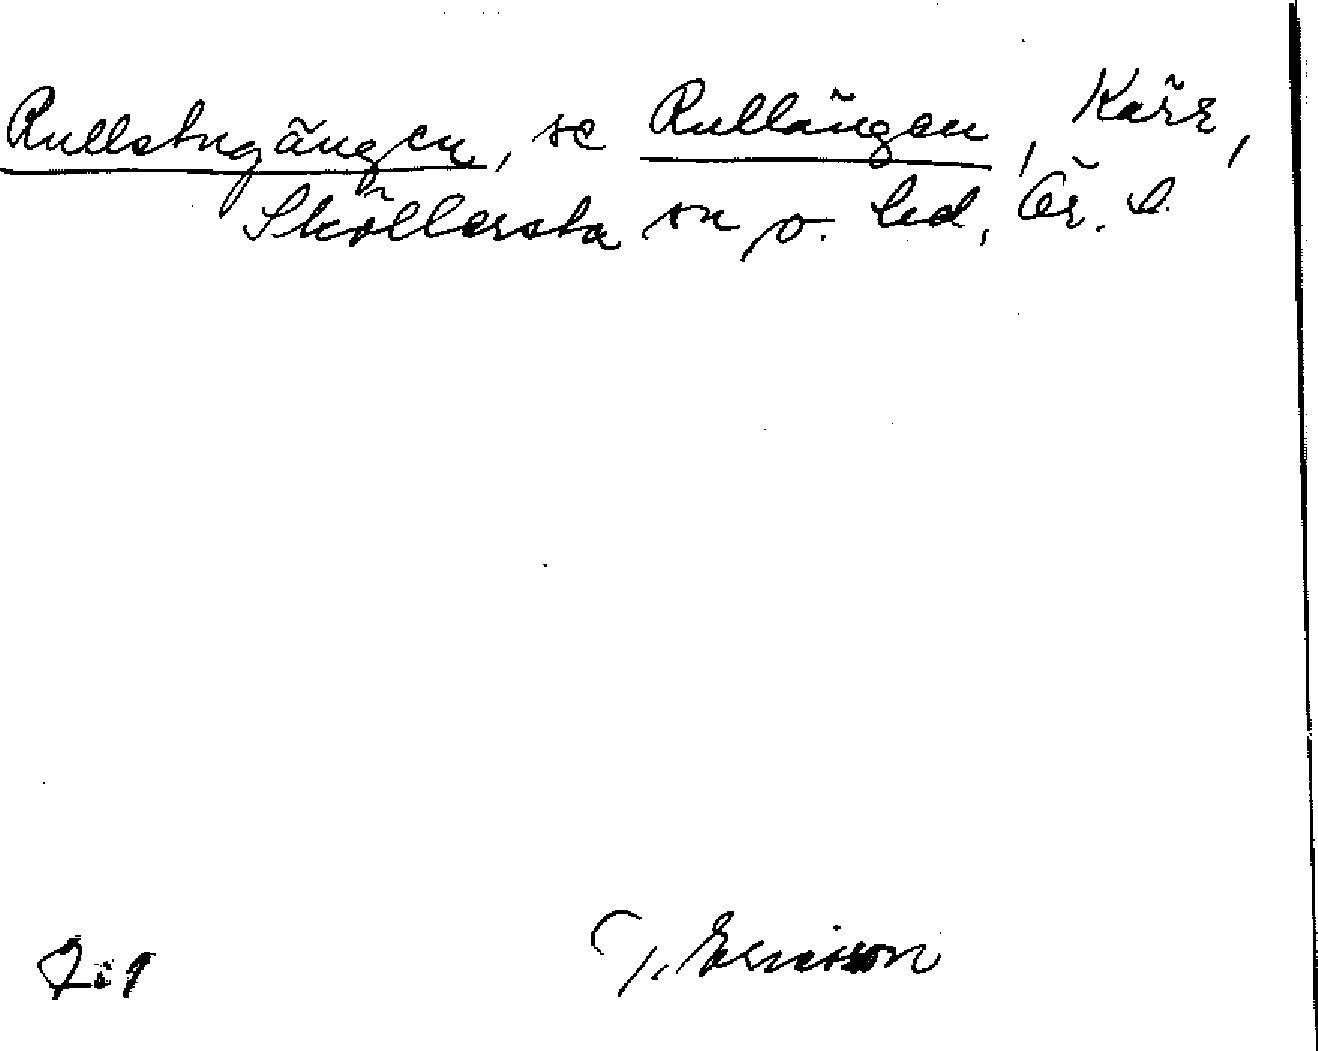 Rullstugängen, se Rullängen, Kärr,
Sköllersta sn o. hd, Ör. l.
T. Ericsson